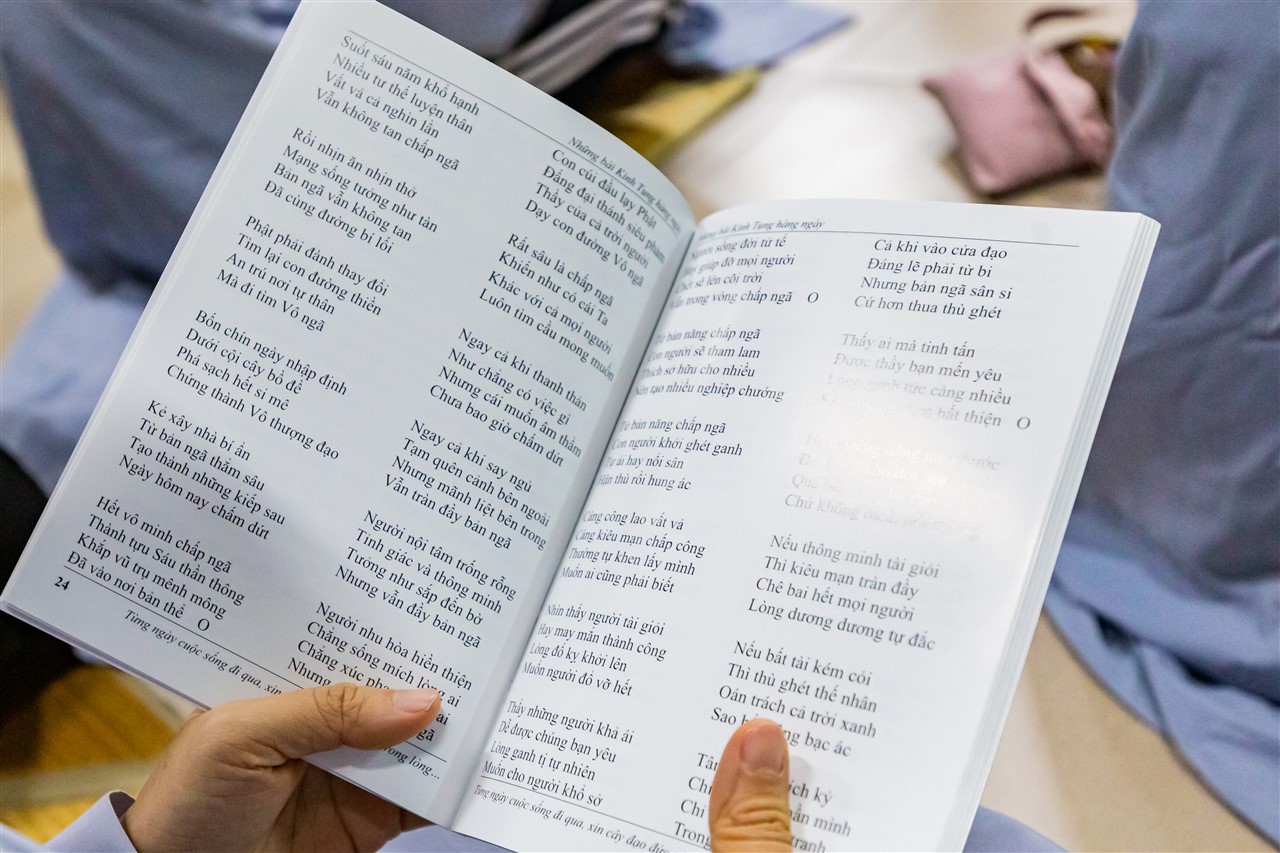 Suốt sáu năm khổ hạnh
Nhiều tư thế luyện thân
Vất vả cả nghìn lần
Vẫn không tan chấp ngã
Rồi nhịn ăn nhịn thở
Mạng sống tưởng như tàn
Bản ngã vẫn không tan
Đã cùng đường bí lối
Phật phải đành thay đổi
Tìm lại con đường thiền
An trú nơi tự thân
Mà đi tìm Vô ngã
Bốn chín ngày nhập định
Dưới cội cây bồ đề
Phá sạch hết si mê
Chứng thành Vô thượng đạo
Kẻ xây nhà bí ẩn
Từ bản ngã thẳm sâu
Tạo thành những kiếp sau
Ngày hôm nay chấm dứt
Hết vô minh chấp ngã
Thành tựu Sáu thần thông
Khắp vũ trụ mênh mông
Đã vào nơi bản thể O
24
Từng ngày cuộc sống đi qua, xin
Những bài Kinh Tụng hàng ngày
Con cúi đầu lạy Phật
Đấng đại thánh siêu phàm
Thầy của cả trời người
Dạy con đường Vô ngã
Rất sâu là chấp ngã
Khiến như có cái Ta
Khác với cả mọi người
Luôn tìm cầu mong muốn
Ngay cả khi thanh thản
Như chẳng có việc gì
Nhưng cái muốn âm thầm
Chưa bao giờ chấm dứt
Ngay cả khi say ngủ
Tạm quên cảnh bên ngoài
Nhưng mãnh liệt bên trong
Vẫn tràn đầy bản ngã
Người nội tâm trống rỗng
Tỉnh giác và thông minh
Tưởng như sắp đến bờ
Nhưng vẫn đầy bản ngã
Người nhu hòa hiền thiện
Chẳng sống mích lòng ai
Chẳng xúc ai
Nhưng ngã
trong lòng...
bài Kinh Tụng hàng ngày
Người sống đời tử tế
giúp đỡ mọi người
sẽ lên cõi trời
trong vòng chấp ngã O
Từ bản năng chấp ngã
Con người sẽ tham lam
Thích sở hữu cho nhiều
Nên tạo nhiều nghiệp chướng
Từ bản năng chấp ngã
Con người khởi ghét ganh
Tự ái hay nổi sân
Hận thù rồi hung ác
Càng công lao vất vả
Càng kiêu mạn chấp công
Thường tự khen lấy mình
Muốn ai cũng phải biết
Nhìn thấy người tài giỏi
Hay may mắn thành công
Lòng đố kỵ khởi lên
Muốn người đổ vỡ hết
Thấy những người khả ái
Dễ được chúng bạn yêu
Lòng ganh tị tự nhiên
Muốn cho người khổ sở
Từng ngày cuộc sống đi qua, xin cây đạo đức
Cả khi vào cửa đạo
Đáng lẽ phải từ bi
Nhưng bản ngã sân si
Cứ hơn thua thù ghét
Thấy ai mà tinh tấn
Được thầy bạn mến yêu
Lòng ganh tức càng nhiều
bất thiện O
Chứ không
Nếu thông minh tài giỏi
Thì kiêu mạn tràn đầy
Chê bai hết mọi người
Lòng dương dương tự đắc
Nếu bất tài kém cỏi
Thì thù ghét thế nhân
Oán trách cả trời xanh
Sao bạc ác
kỷ
Chỉ mình
Trong tranh